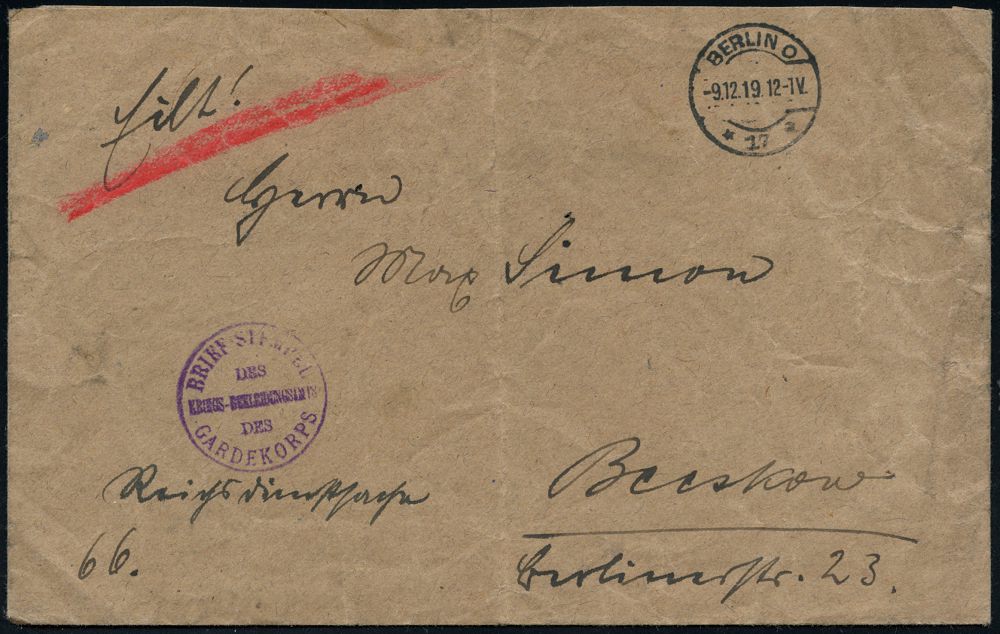 BERLIN O
-9.12.19. 12-1V.
* 17 a
Eilt!
Herrn
Max Simon
BRIEF-STEMPEL
DES
KRIEGS-BEKLEIDUNGSAMTS
DES
GARDEKORPS
Reichsdienstsache
66.
Beeskow
Berlinerstr. 23.